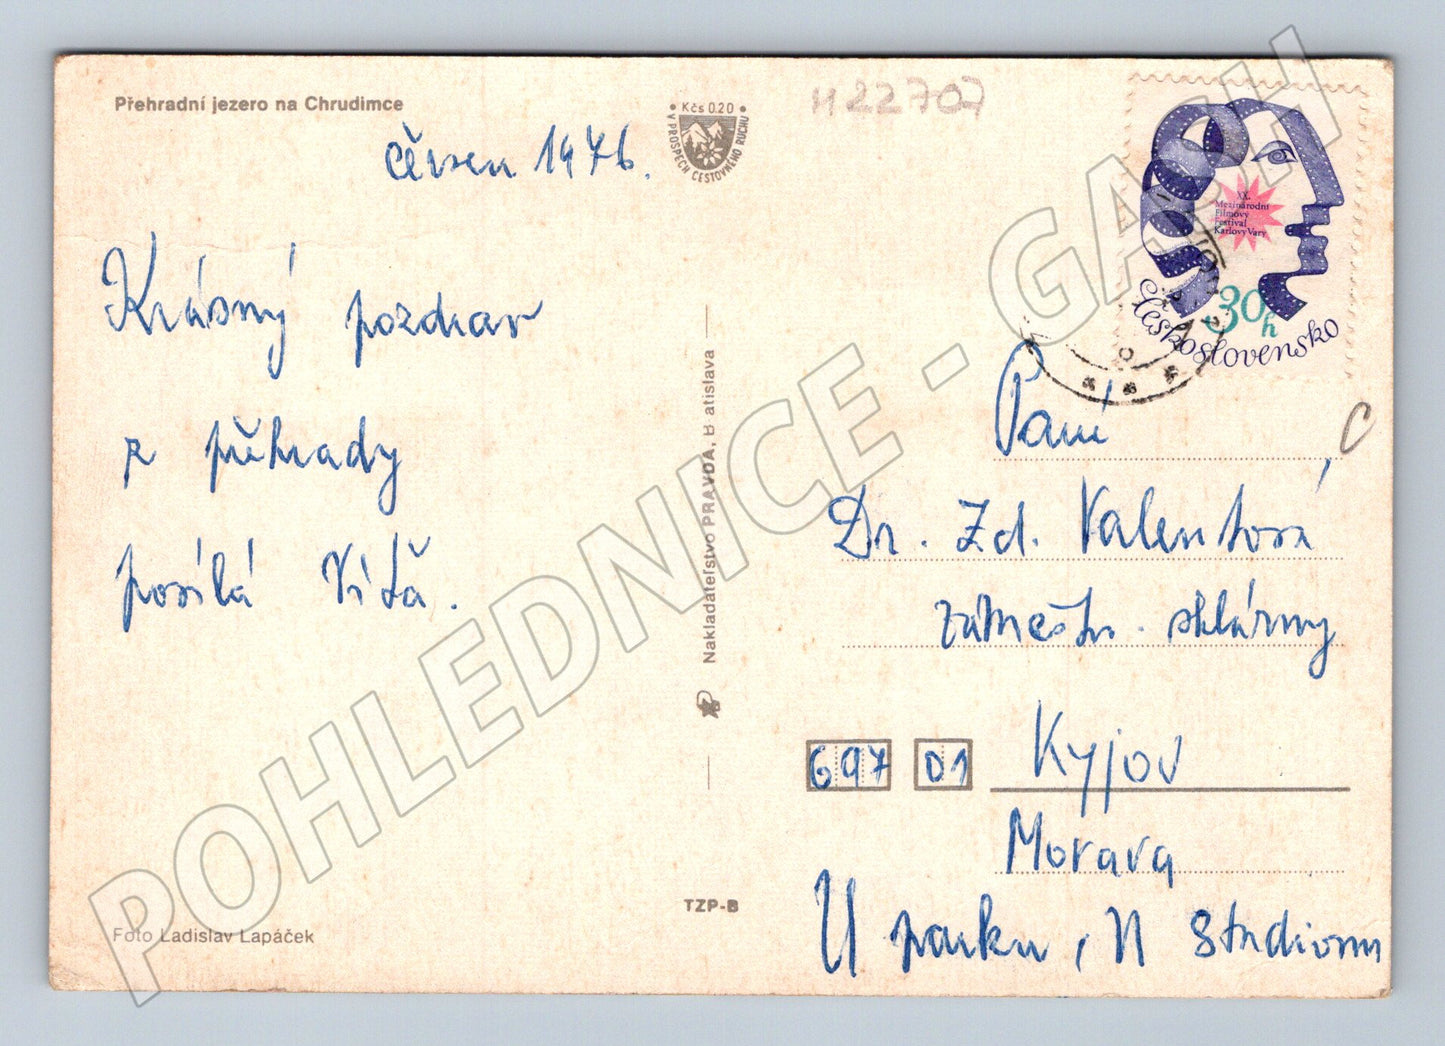 Přehradní jezero na Chrudimce
H22707
Kčs 0.20
V PROSPĚCH CESTOVNÉHO RUCHU
červen 1976.
Krásný pozdrav
z přehrady
posílá Víťa.
Foto Ladislav Lapáček
Nakladateľstvo PRAVDA, B atislava
TZP-B
XX.
Mezinárodní
Filmový
Festival
Karlovy Vary
30h
Československo
Paní
Dr. Zd. Valentová
zaměstn. sklárny
697 01 Kyjov
Morava
U parku, N
C
POHLEDNICE - GASH